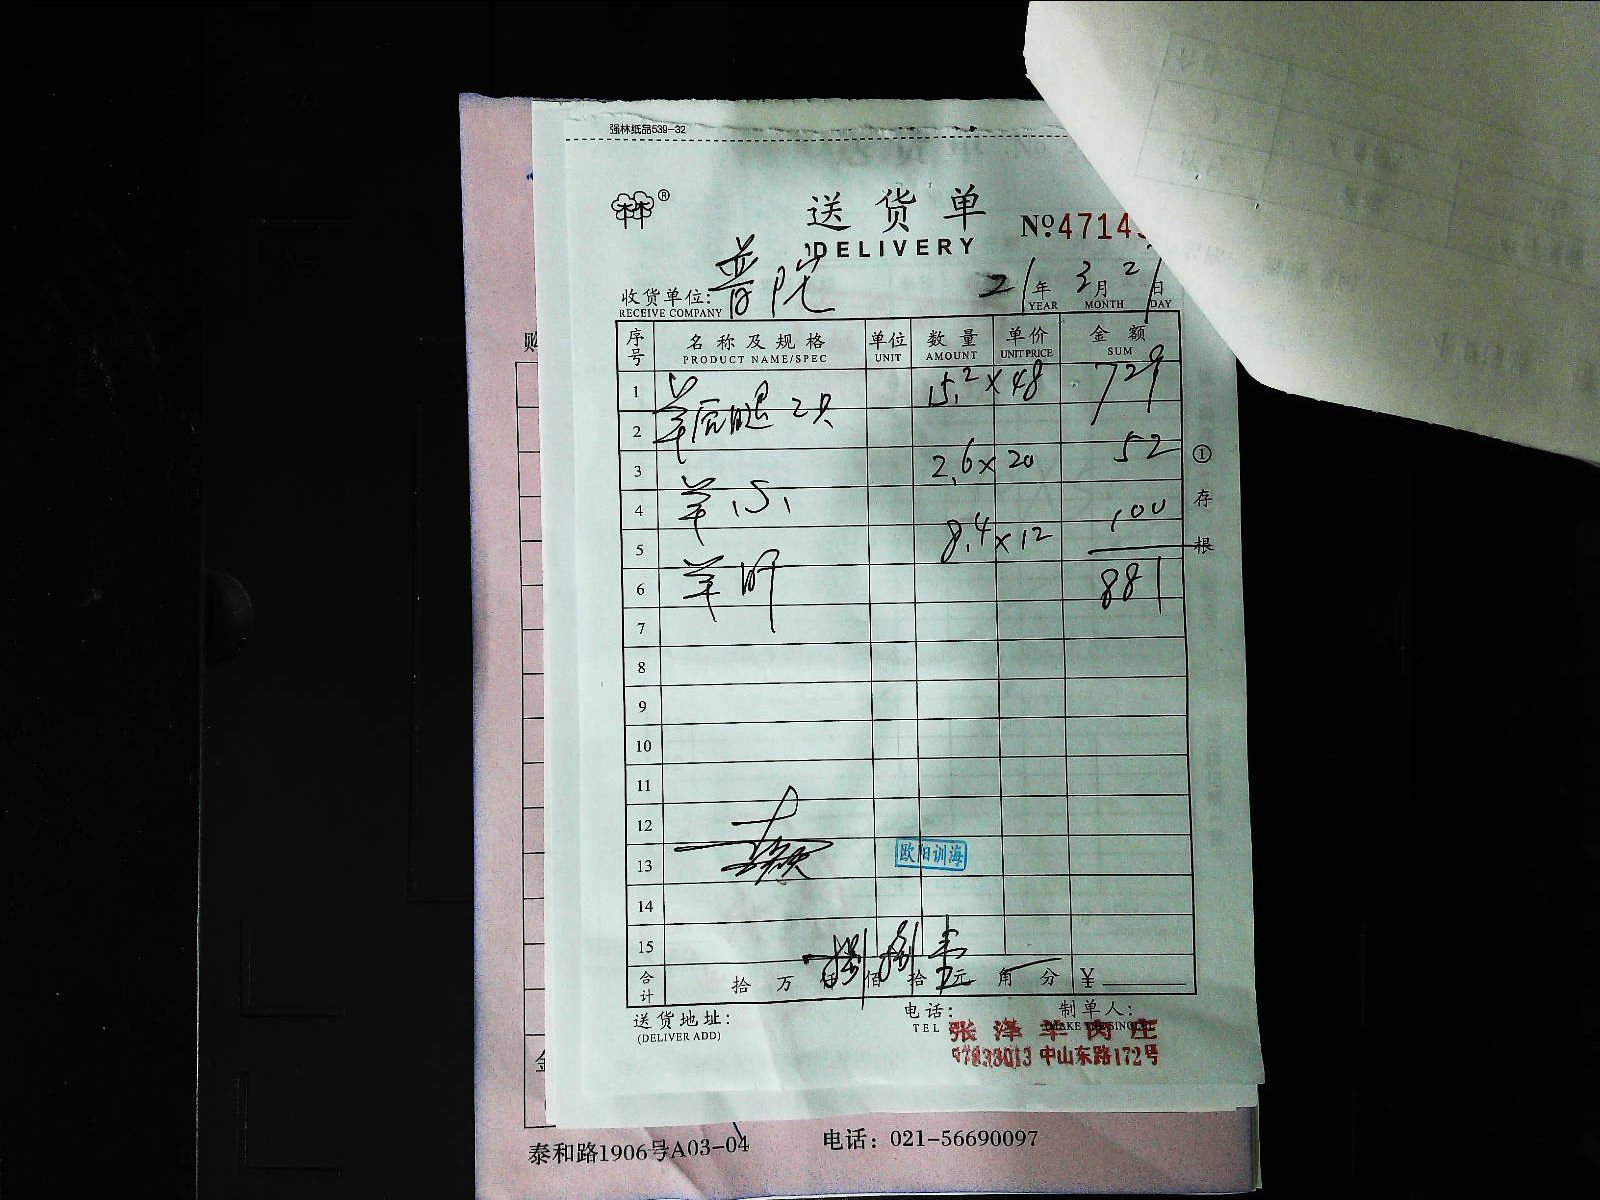 强林纸品539-32
林®
送货单
DELIVERY
№4714
收货单位: 普院 21年3月21日
RECEIVE COMPANY YEAR MONTH DAY
序号 名称及规格 单位 数量 单价 金额
PRODUCT NAME/SPEC UNIT AMOUNT UNIT PRICE SUM
1 15.2×48 729
2 羊后腿2只
3 2.6×20 52
4 羊心
5 8.4×12 100
6 羊肝 881
7
8
9
10
11
12
13 欧阳训海
14
15
合计 拾万仟捌佰捌拾壹元角分 ¥
①存根
送货地址: 电话: 制单人:
(DELIVER ADD) TEL (MAKE THE SINGLE)
张泽羊肉庄
57833013 中山东路172号
购
金
泰和路1906号A03-04 电话：021-56690097